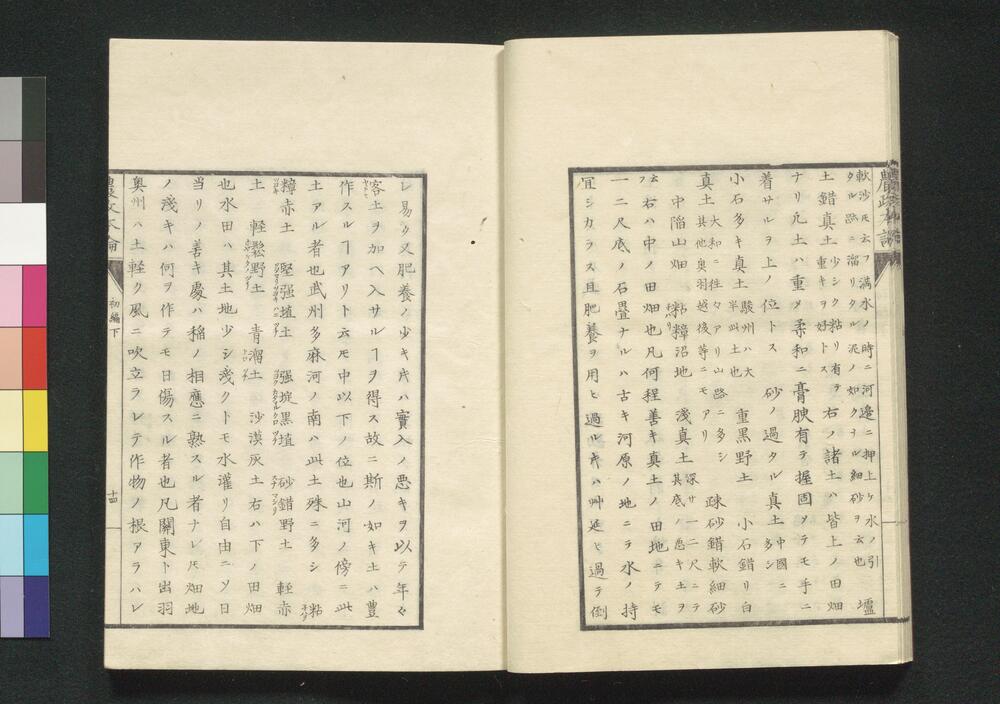 軟沙㞮云フ満水ノ時ニ河邉ニ押上ケ水ノ引
タル跡ニ溜リタル泥ノ如クナル細砂ヲ云也 壚
土錯真土 少シク粘リ有ヲ 重キヲ好トス 右ノ諸土ハ皆上ノ田畑
ナリ凡土ハ重メ柔和ニ膏腴有テ握固ソテモ手ニ
着サルヲ上ノ位トス 砂ノ過タル真土 中國ニ多シ
小石多キ真土 駿州ハ大半此土也 重黒野土 小石錯リ白
真土 大和ニ往々アリ山路ニ多シ 其土其他奥羽越後等ニモアリ 疎砂錯軟細砂
中陥山畑 粘糠沼地 淺真土 深サ一二尺ニテ其底ノ悪キ土ヲ云フ
右ハ中ノ田畑也凡何程善キ真土ノ田地ニテモ
一二尺底ノ石畳ナルハ古キ河原ノ地ニテ水ノ持
宜シカラス且肥養ヲ用ヒ過ル𪜈ハ艸延ヒ過テ倒
レ易ク又肥養ノ少キ𪜈ハ實入ノ悪キヲ以テ年々
客土ヲ加ヘ入サルヿヲ得ス故ニ斯ノ如キ土ハ豊
作スルヿアリト云𪜈中以下ノ位也山河ノ傍ニ此
土アル者也武州多麻河ノ南ハ此土殊ニ多シ 粘
糠赤土 堅强埴土 强埞黒埴 砂錯野土 輕赤
土 軽鬆野土 青溜土 沙漠灰土右ハ下ノ田畑
也水田ハ其土地少シ淺クトモ水灌リ自由ニソ日
当リノ善キ處ハ稲ノ相應ニ熟スル者ナレ𪜈畑地
ノ淺キハ何ヲ作テモ日傷スル者也凡關東ト出羽
奥州ハ土軽ク風ニ吹立ラレテ作物ノ根アラハレ
初編下
十四